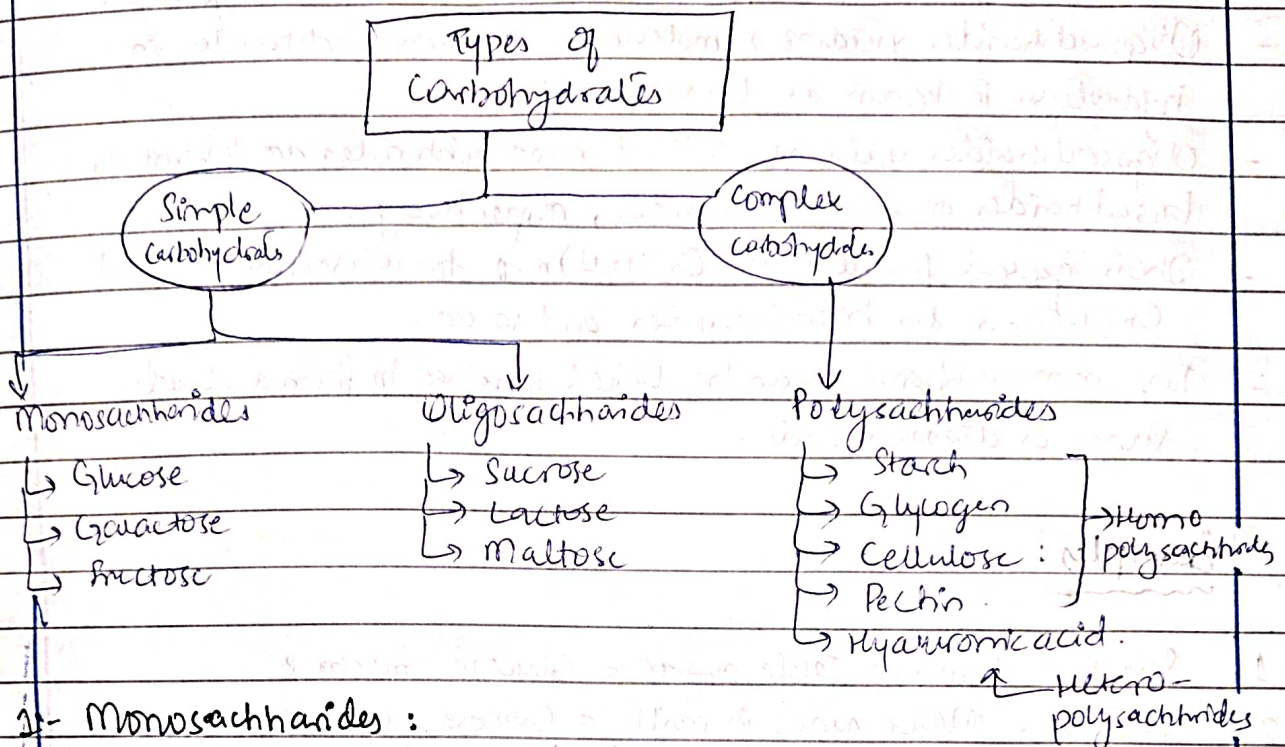 Types Of
Carbohydrates
Simple
Carbohydrates
Complex
carbohydrates
Monosachharides
Glucose
Galactose
fructose
Oligosachharides
Sucrose
Lactose
Maltose
Polysachharides
Starch
Glycogen
Cellulose :
Pectin.
Hyaluronic acid.
Homo
polysachhrids
Hetero-
polysachhrides
1- Monosachharides :